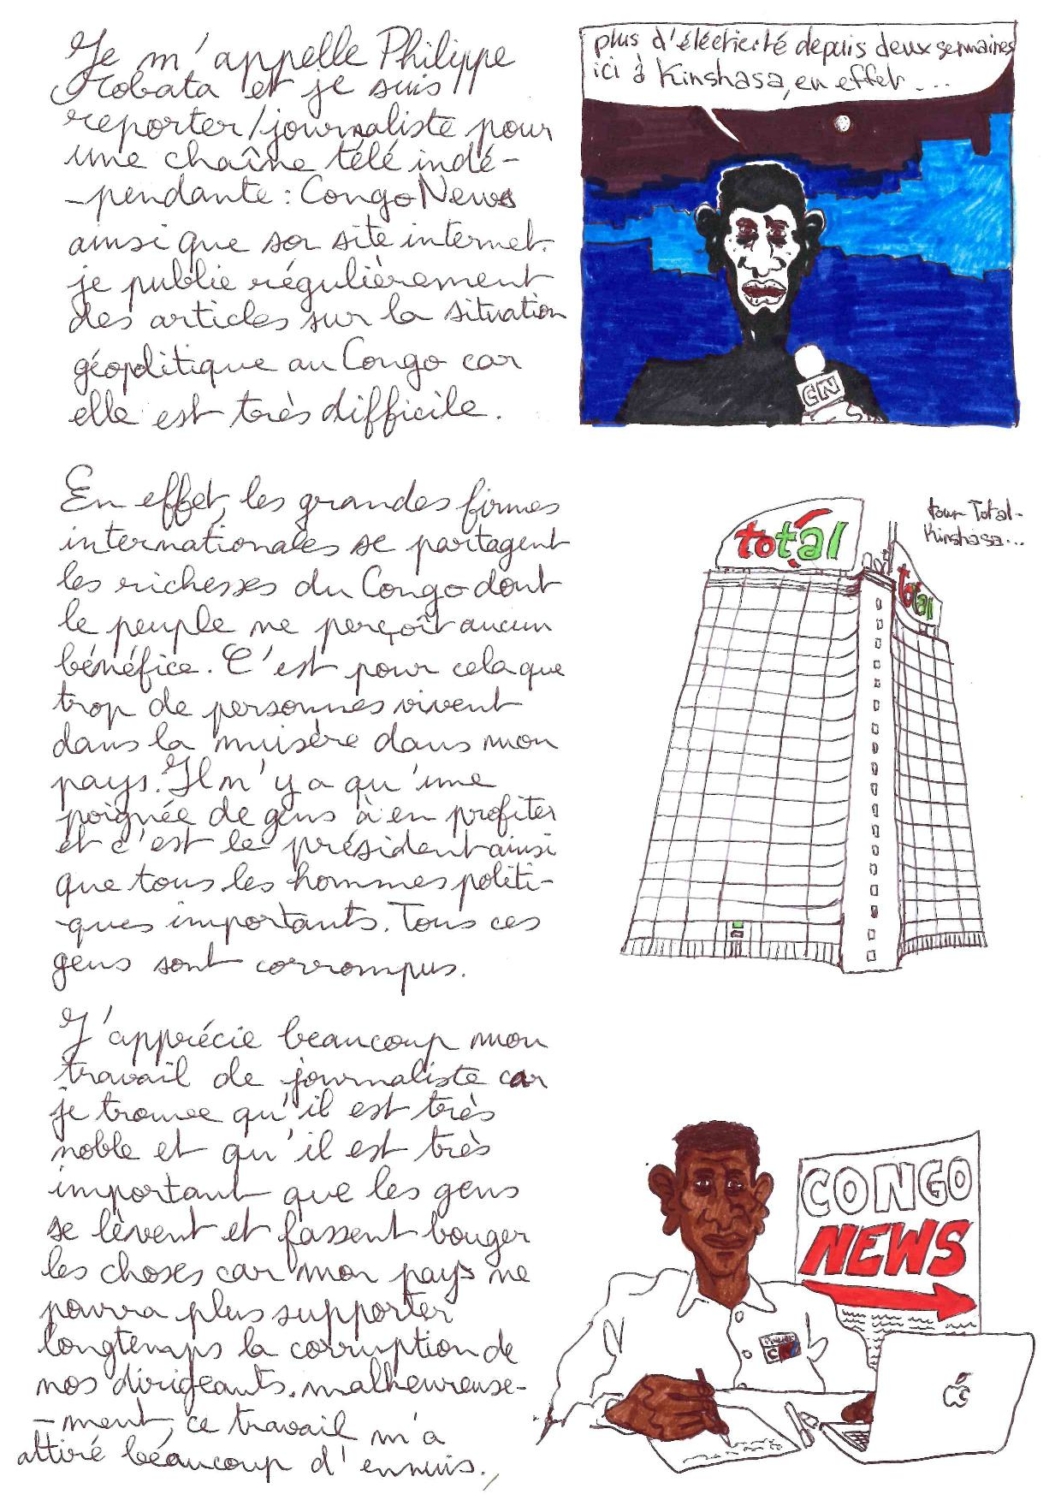 Je m'appelle Philippe
Kobata et je suis
reporter/journaliste pour
une chaîne télé indé-
-pendante : Congo News
ainsi que son site internet.
je publie régulièrement
des articles sur la situation
géopolitique au Congo car
elle est très difficile.
plus d'éléctricité depuis deux semaines
ici à Kinshasa, en effet....
CN
En effet, les grandes firmes
internationales se partagent
les richesses du Congo dont
le peuple ne perçoit aucun
bénéfice. C'est pour cela que
trop de personnes vivent
dans la misère dans mon
pays. Il n'y a qu'une
poignée de gens à en profiter
et c'est le président ainsi
que tous les hommes politi-
-ques importants. Tous ces
gens sont corrompus.
total
total
tour Total-
Kinshasa...
J'apprécie beaucoup mon
travail de journaliste car
je trouve qu'il est très
noble et qu'il est très
important que les gens
se lèvent et fassent bouger
les choses car mon pays ne
pourra plus supporter
longtemps la corruption de
nos dirigeants. malheureuse-
-ment, ce travail m'a
attiré beaucoup d'ennuis.
CONGO
NEWS